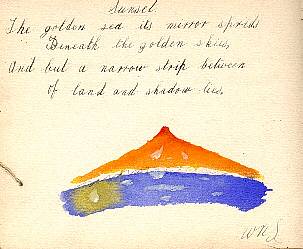 Sunset.
The golden sea its mirror spreds
Beneath the golden skies,
And but a narrow strip between
Of land and shadow lies.